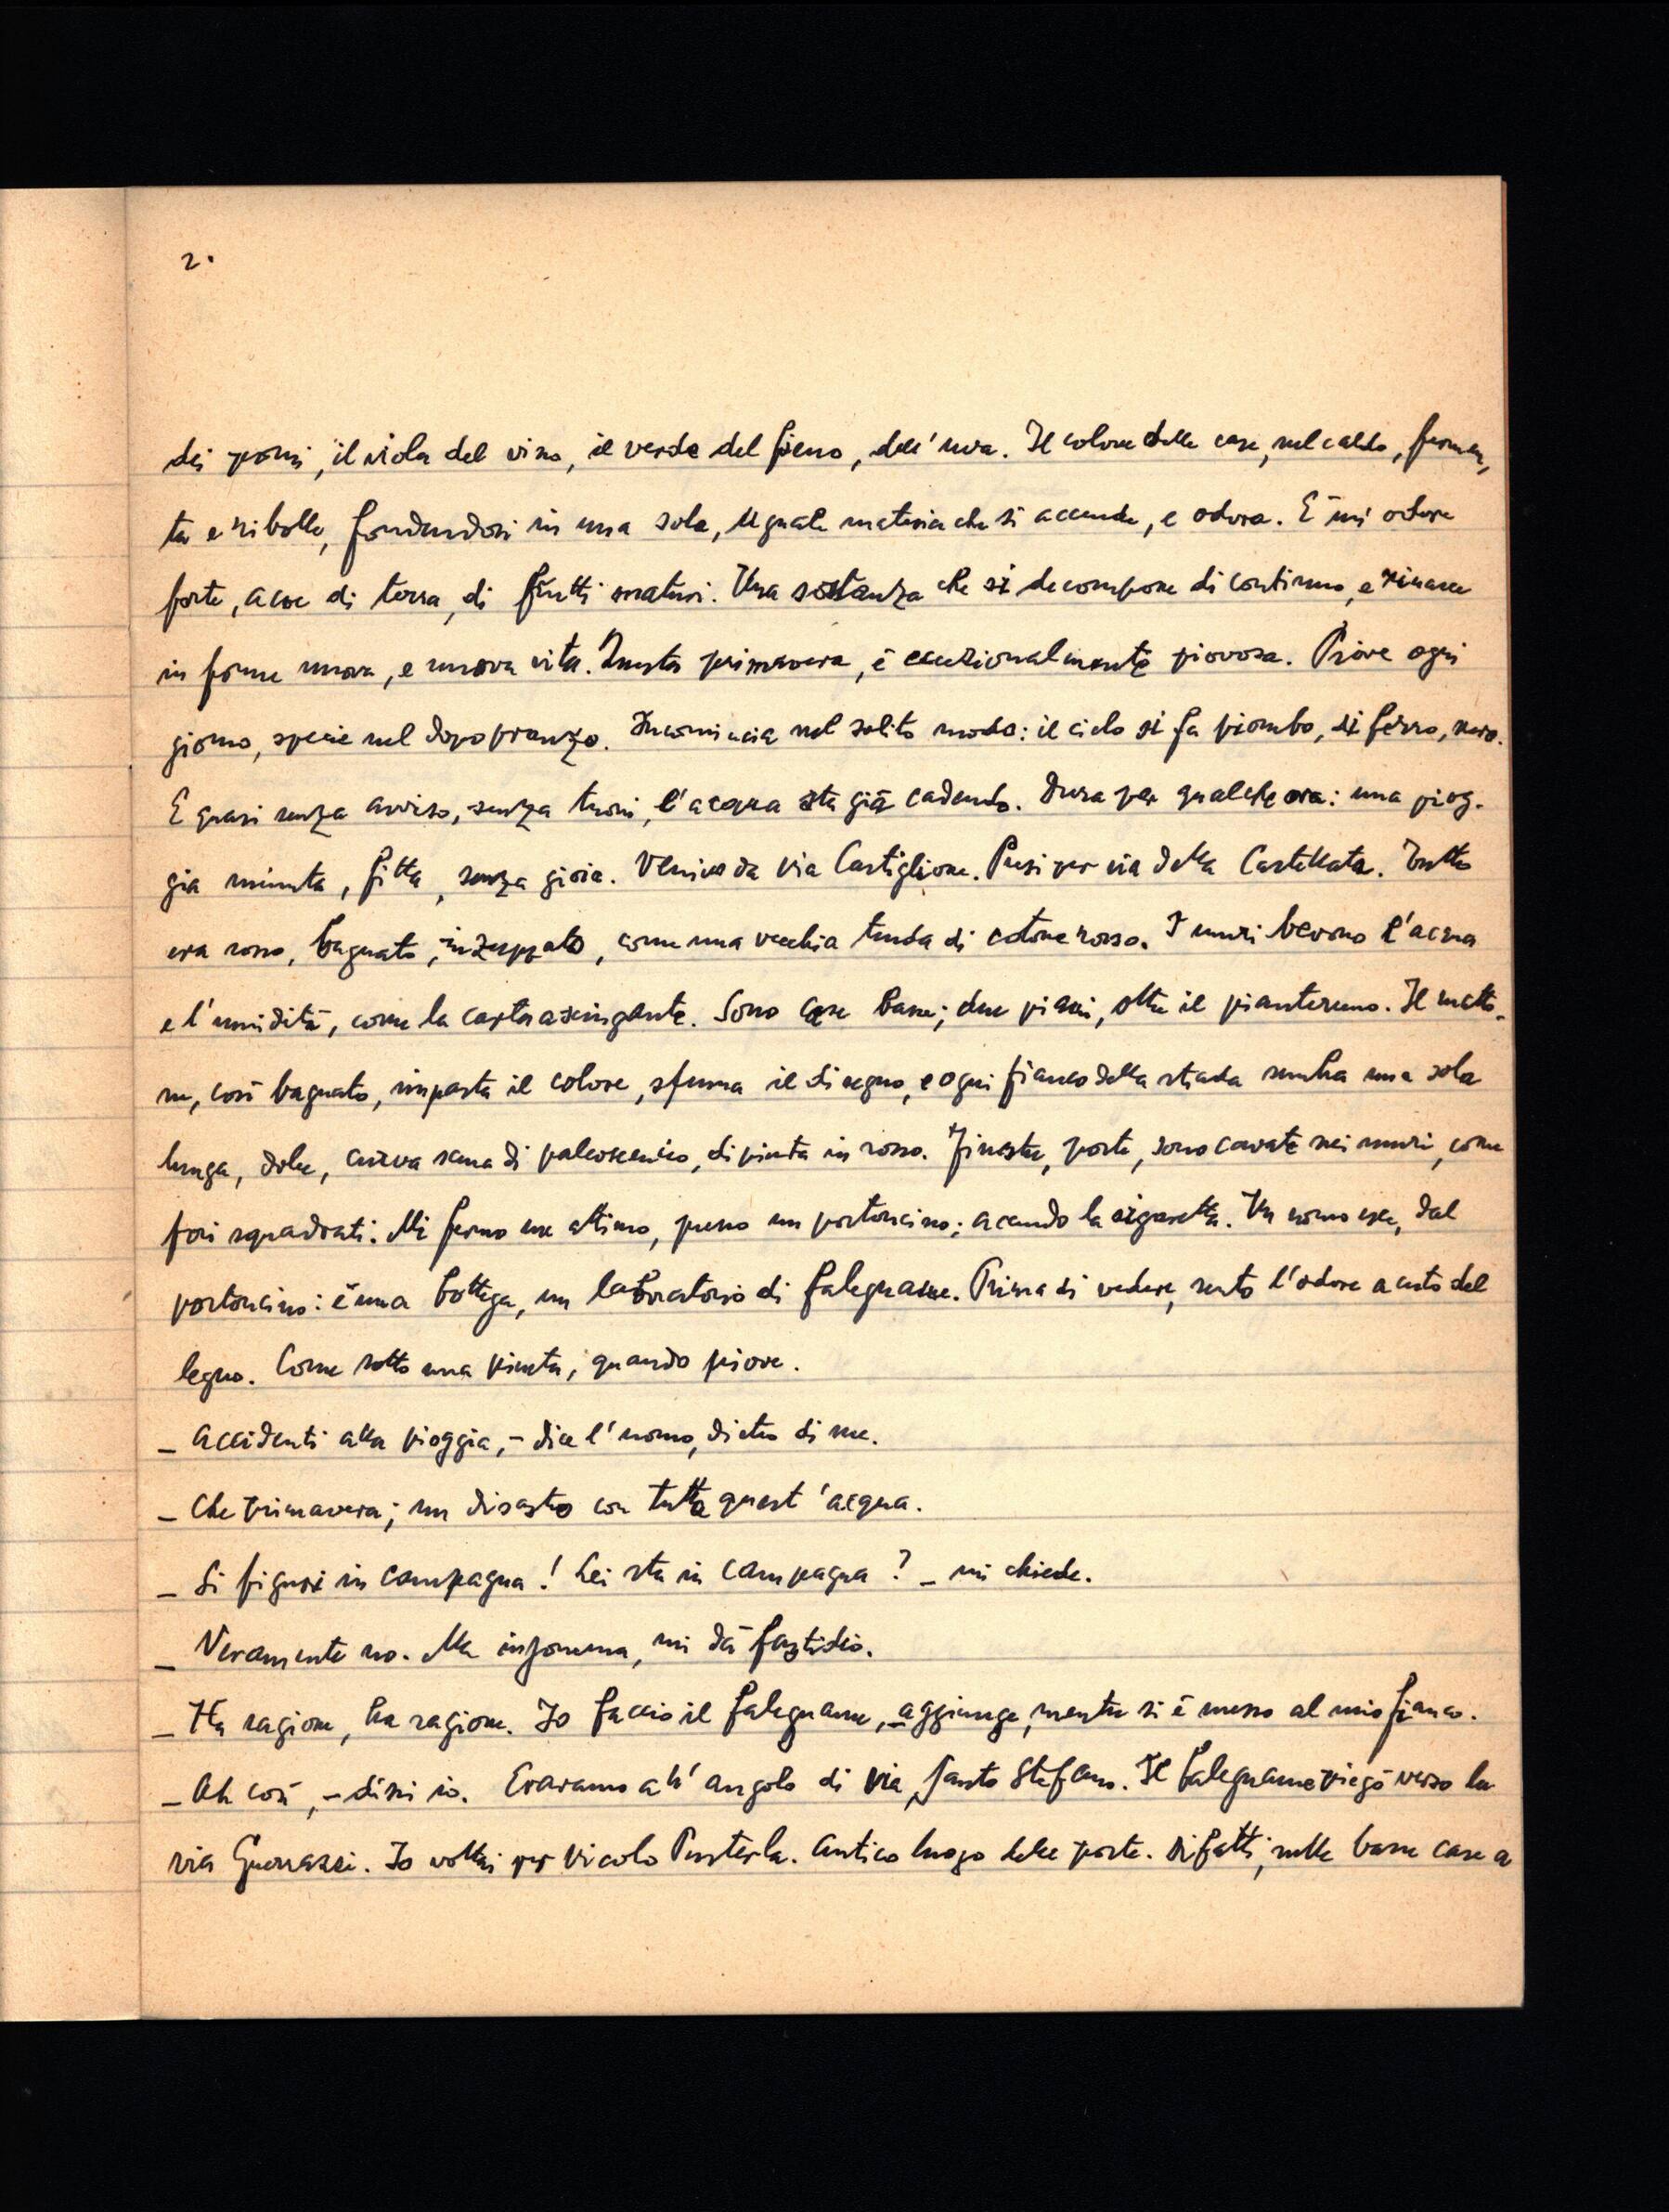 2.
dei pomi, il viola del vino, il verde del fieno, dell'uva. Il colore delle case, nel caldo, fermen,
ta e ribolle, fondendosi in una sola, uguale materia che si accende, e odora. È un odore
forte, acre di terra, di frutti maturi. Una sostanza che si decompone di continuo, e rinasce
in forme nuova, e nuova vita. Questa primavera, è eccezionalmente piovosa. Piove ogni
giorno, specie nel dopopranzo. Incomincia nel solito modo: il cielo si fa piombo, di ferro, nero.
E quasi senza avviso, senza tuoni, l'acqua sta già cadendo. Dura per qualche ora: una piog-
gia minuta, fitta, senza gioia. Venivo da via Castiglione. Presi per via della Castellata. Tutto
era rosso, bagnato, inzuppato, come una vecchia tenda di cotone rosso. I muri bevono l'acqua
e l'umidità, come la carta asciugante. Sono case basse; due piani, oltre il pianterreno. Il matto-
ne, così bagnato, impasta il colore, sfuma il disegno, e ogni fianco della strada sembra una sola
lunga, dolce, curva scena di palcoscenico, dipinta in rosso. Finestre, porte, sono cavate nei muri, come
fori squadrati. Mi fermo un attimo, presso un portoncino; accendo la sigaretta. Un uomo esce, dal
portoncino: è una bottega, un laboratorio di falegname. Prima di vedere, sento l'odore acuto del
legno. Come sotto una pineta, quando piove.
_ Accidenti alla pioggia, - dice l'uomo, dietro di me.
_ Che primavera; un disastro con tutta quest'acqua.
_ Si figuri in campagna! Lei sta in campagna? _ mi chiede.
_ Veramente no. Ma insomma, mi dà fastidio.
_ Ha ragione, ha ragione. Io faccio il falegname, _ aggiunge, mentre si è messo al mio fianco.
_ Ah così, - dissi io. Eravamo all'angolo di via Santo Stefano. Il falegname piegò verso la
via Guerrazzi. Io voltai per vicolo Pusterla. Antico luogo delle porte. Difatti, nelle basse case a